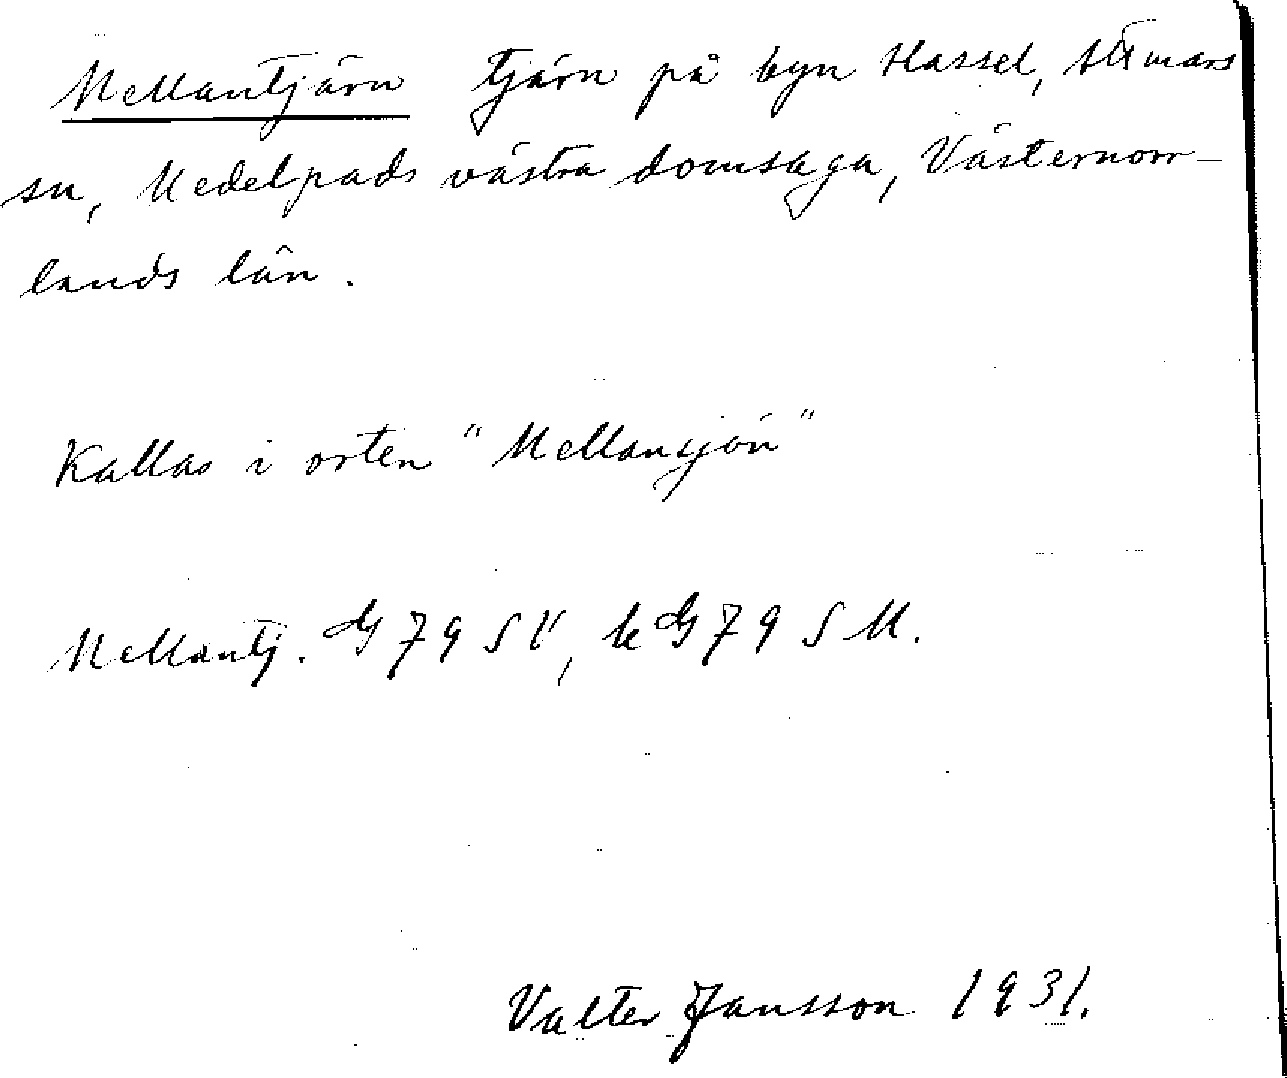 Mellantjärn tjärn på byn Hassel, Attmars
sn, Medelpads västra domsaga, Västernorr-
lands län.
Kallas i orten "Mellansjön"
Mellantj. G 79 SV, k G 79 S M.
Valter Jansson 1931.